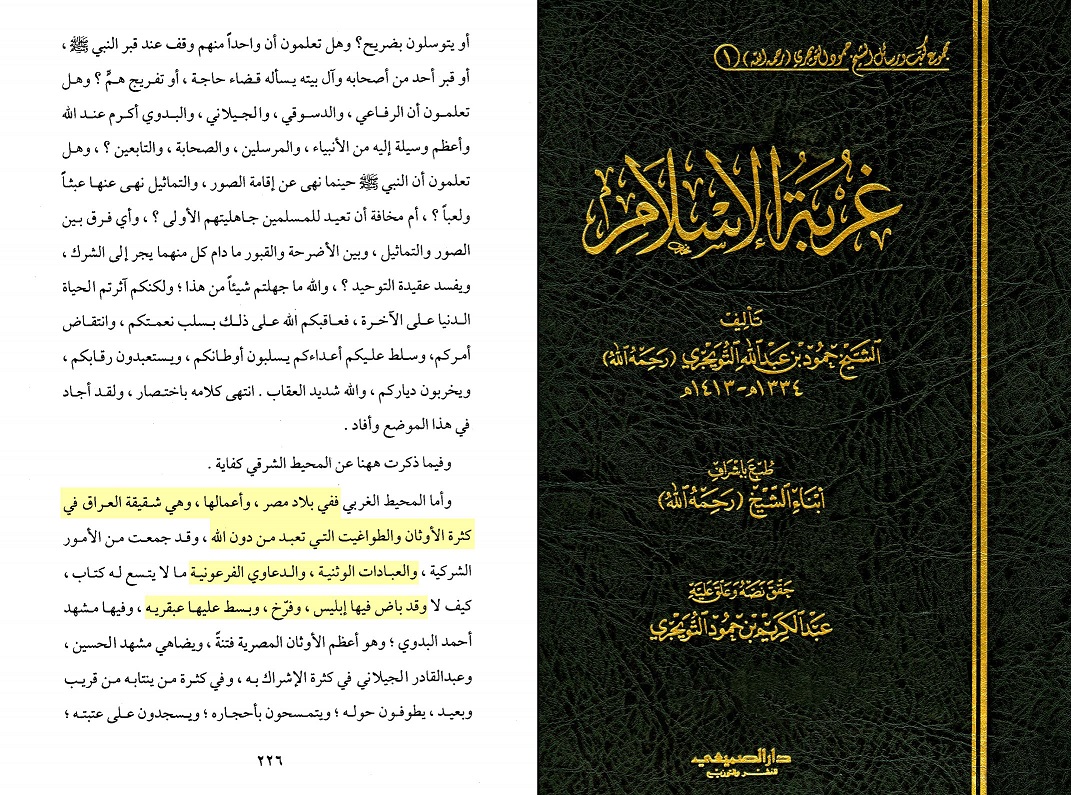 أو يتوسلون بضريح؟ وهل تعلمون أن واحداً منهم وقف عند قبر النبي ﷺ ،
أو قبر أحد من أصحابه وآل بيته يسأله قضاء حاجة ، أو تفريج همٍّ ؟ وهل
تعلمون أن الرفاعي ، والدسوقي ، والجيلاني ، والبدوي أكرم عند الله
وأعظم وسيلة إليه من الأنبياء ، والمرسلين ، والصحابة ، والتابعين ؟ ، وهل
تعلمون أن النبي ﷺ حينما نهى عن إقامة الصور ، والتماثيل نهى عنها عبثاً
ولعباً ؟ ، أم مخافة أن تعيد للمسلمين جاهليتهم الأولى ؟ ، وأي فرق بين
الصور والتماثيل ، وبين الأضرحة والقبور ما دام كل منهما يجر إلى الشرك ،
ويفسد عقيدة التوحيد ؟ ، والله ما جهلتم شيئاً من هذا ؛ ولكنكم آثرتم الحياة
الدنيا على الآخرة ، فعاقبكم الله على ذلك بسلب نعمتكم ، وانتقاض
أمركم، وسلط عليكم أعداءكم يسلبون أوطانكم ، ويستعبدون رقابكم ،
ويخربون دياركم ، والله شديد العقاب . انتهى كلامه باختصار ، ولقد أجاد
في هذا الموضع وأفاد .
وفيما ذكرت ههنا عن المحيط الشرقي كفاية .
وأما المحيط الغربي ففي بلاد مصر ، وأعمالها ، وهي شقيقة العراق في
كثرة الأوثان والطواغيت التي تعبد من دون الله ، وقد جمعت من الأمور
الشركية ، والعبادات الوثنية ، والدعاوي الفرعونية ما لا يتسع له كتاب ،
كيف لا وقد باض فيها إبليس ، وفرّخ ، وبسط عليها عبقريه ، وفيها مشهد
أحمد البدوي ؛ وهو أعظم الأوثان المصرية فتنةً ، ويضاهي مشهد الحسين ،
وعبدالقادر الجيلاني في كثرة الإشراك به ، وفي كثرة من ينتابه من قريب
وبعيد ، يطوفون حوله ؛ ويتمسحون بأحجاره ؛ ويسجدون على عتبته ؛
٢٢٦
مجموع كتب ورسائل الشيخ حمود التويجري (رحمه الله) (١)
غُربَةُ الإِسْلَامِ
تَأليفْ
الشَّيخ حمُود بن عَبْدِ اللهِ التُّوَيجري (رَحِمَهُ اللهُ)
١٣٣٤هـ - ١٤١٣هـ
طُبعَ بإشرافِ
أبنَاءِ الشَّيخ (رَحِمَهُ اللهُ)
حَقّقَ نَصّهُ وَعَلّقَ عَليَه
عَبْدُ الكَريم بْن حَمُود التُّوَيجري
دار الصميعي
للنشر والتوزيع